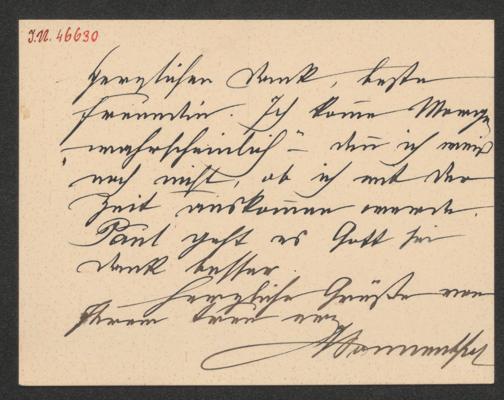 J.N. 46630
Herzlichen Dank, beste
Freundin. Ich komme Morgen
"wahrscheinlich" – denn ich weiß
noch nicht, ob ich mit der
Zeit auskommen werde.
Paul geht es Gott sei
Dank besser.
Herzliche Grüße von
Ihrem treu erg
Sonnenthal